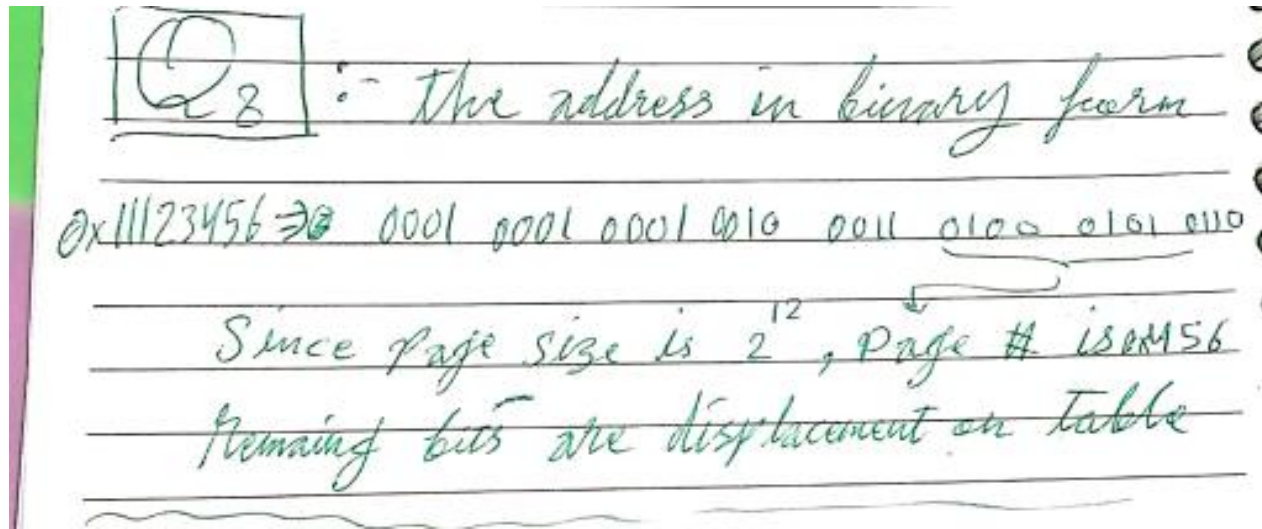 Q8 :- The address in binary form
0x11123456 ⇒ 0001 0001 0001 0010 0011 0100 0101 0110
Since page size is 2^12, Page # is 0x456
Remaing bits are displacement on table